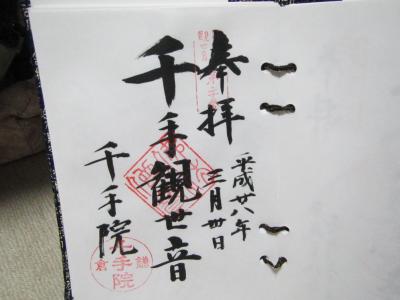 奉拝
平成廿八年
三月卅日
千手観世音
千手院